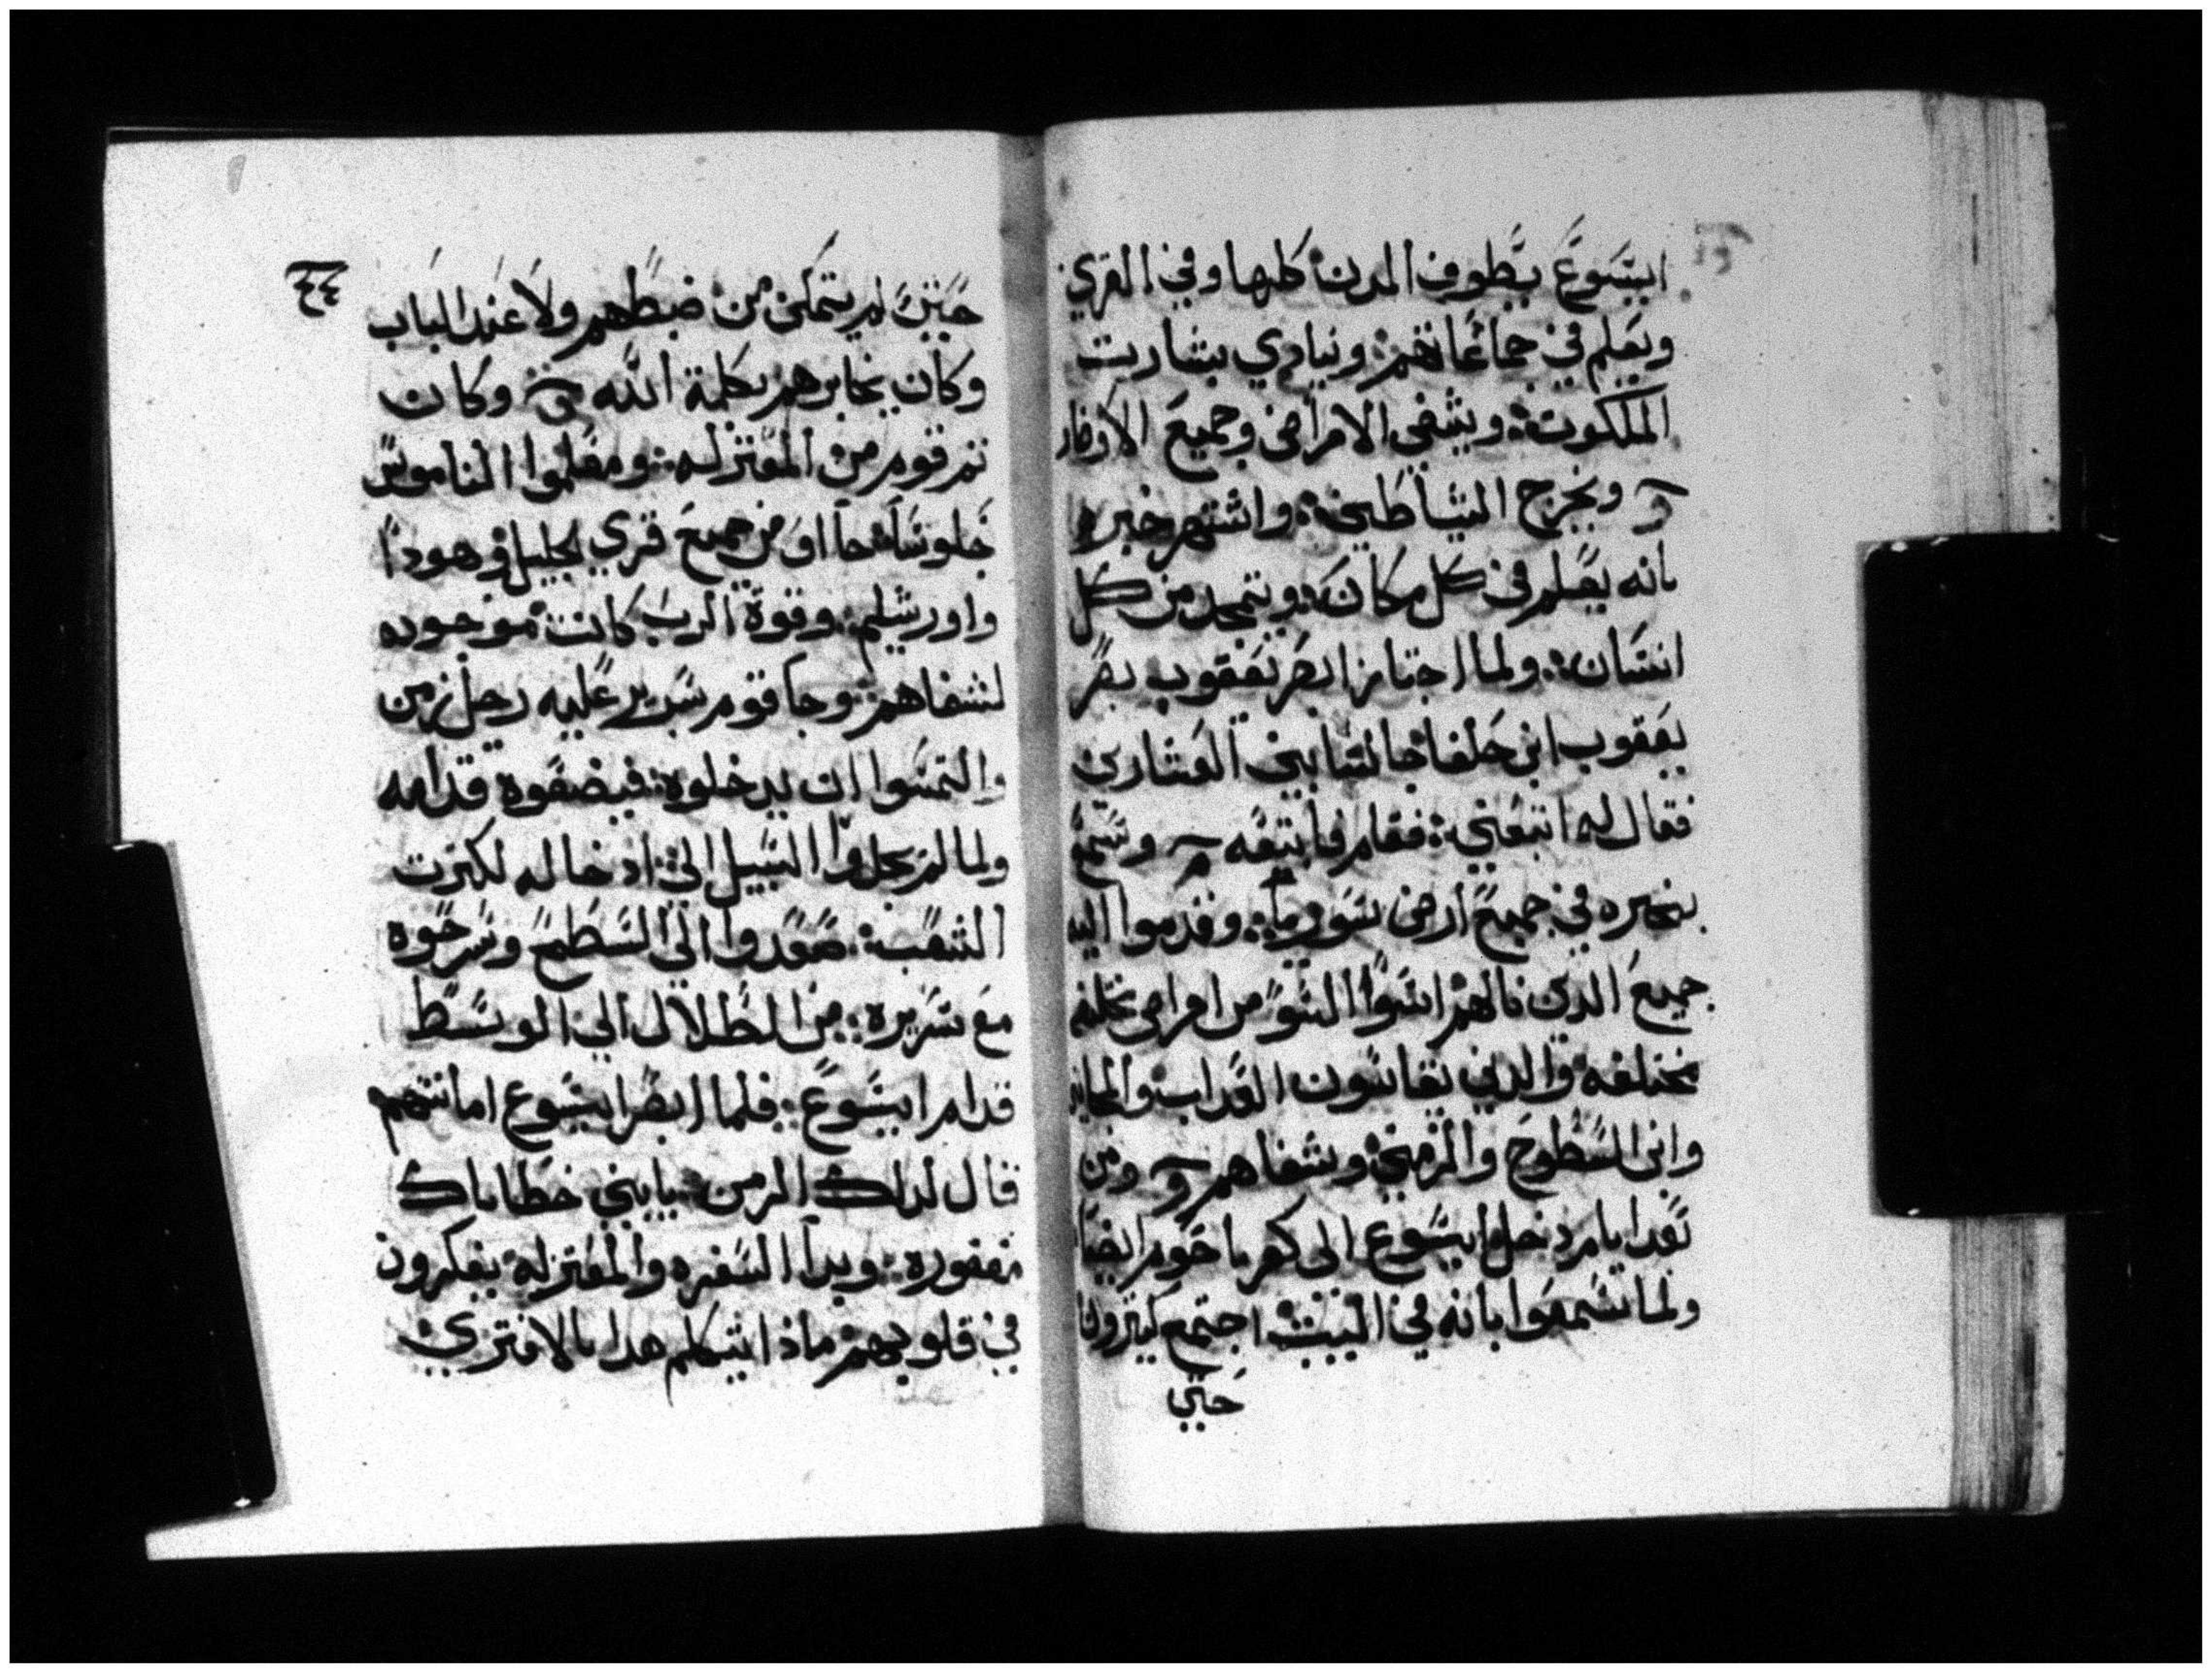 ايسوع يطوف المدن كلها وفي القري
ويعلم في جماعاتهم: وينادي بشاريت
الملكوت: ويشفي الامراض وجميع الاوظار
ويخرج الشياطين: واشتهر خبره
بانه يعلم في كل مكان: ويتمجد من كل
انسان: ولما اجتاز ابصر يعقوب بصر
يعقوب ابن حلفا جالسا بين العشارين
فقال له اتبعني: فقام فاتبعه وسمع
بخبره في جميع ارض سوريا: وقدموا اليه
جميع الذين نالهم اسوا السو من امراض مختلفه
مختلفه والذين يقاسون العداب والمجانين
وابن السطوح والزمني: وشفاهم ومن
بعد ايام دخل ايسوع الى كفر ناحوم ايضا
ولما سمعوا بانه في البيت اجتمع كثيرون
حتي
٤٤
حتي لم يتمكن من ضبطهم ولا عند الباب
وكان يخابرهم بكلمة الله وكان
تم قوم من المعتزله: ومعلموا الناموس
جلوسا جااو من جميع قري الجليل وهودا
واورشليم: وقوة الرب كانت موجوده
لشفاهم: وجا قوم بسرير عليه رجل زمن
والتمسوا ان يدخلوه: فيضعوه قدامه
ولما لم يجدوا السبيل الي ادخاله لكترت
الشعب: صعدوا الي السطح وسرحوه
مع سريره: من الظلال الي الوسط
قدام ايسوع: فلما ابصر ايسوع امانتهم
قال لدلك الزمن: يابني خطاياك
مغفوره: وبدا السفره والمعتزله يفكرون
في قلوبهم: ماذا يتكلم هدا بالافتري